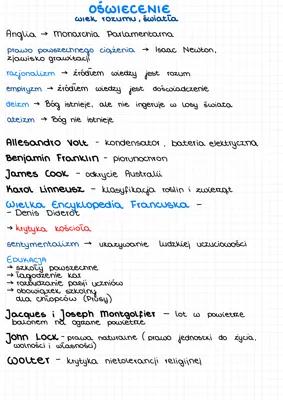 OŚWIECENIE
wiek rozumu, światła
Anglia → Monarchia Parlamentarna
prawo powszechnego ciążenia → Isaac Newton,
zjawisko grawitacji
racjonalizm → źródłem wiedzy jest rozum
empiryzm → źródłem wiedzy jest doświadczenie
deizm → Bóg istnieje, ale nie ingeruje w losy świata
ateizm → Bóg nie istnieje
Allesandro Volt - kondensator, bateria elektryczna
Benjamin Franklin - piorunochron
James Cook - odkrycie Australii
Karol Linneusz - klasyfikacja roślin i zwierząt
Wielka Encyklopedia Francuska -
- Denis Diderot
→ krytyka kościoła
sentymentalizm → ukazywanie ludzkiej uczuciowości
Edukacja
→ szkoły powszechne
→ łagodzenie kar
→ rozbudzanie pasji uczniów
→ obowiązek szkolny
dla chłopców (Prusy)
Jacques i Joseph Montgolfier - lot w powietrze
balonem na ogrzane powietrze
John Lock - prawa naturalne (prawo jednostki do życia,
wolności i własności)
Wolter - krytyka nietolerancji religijnej